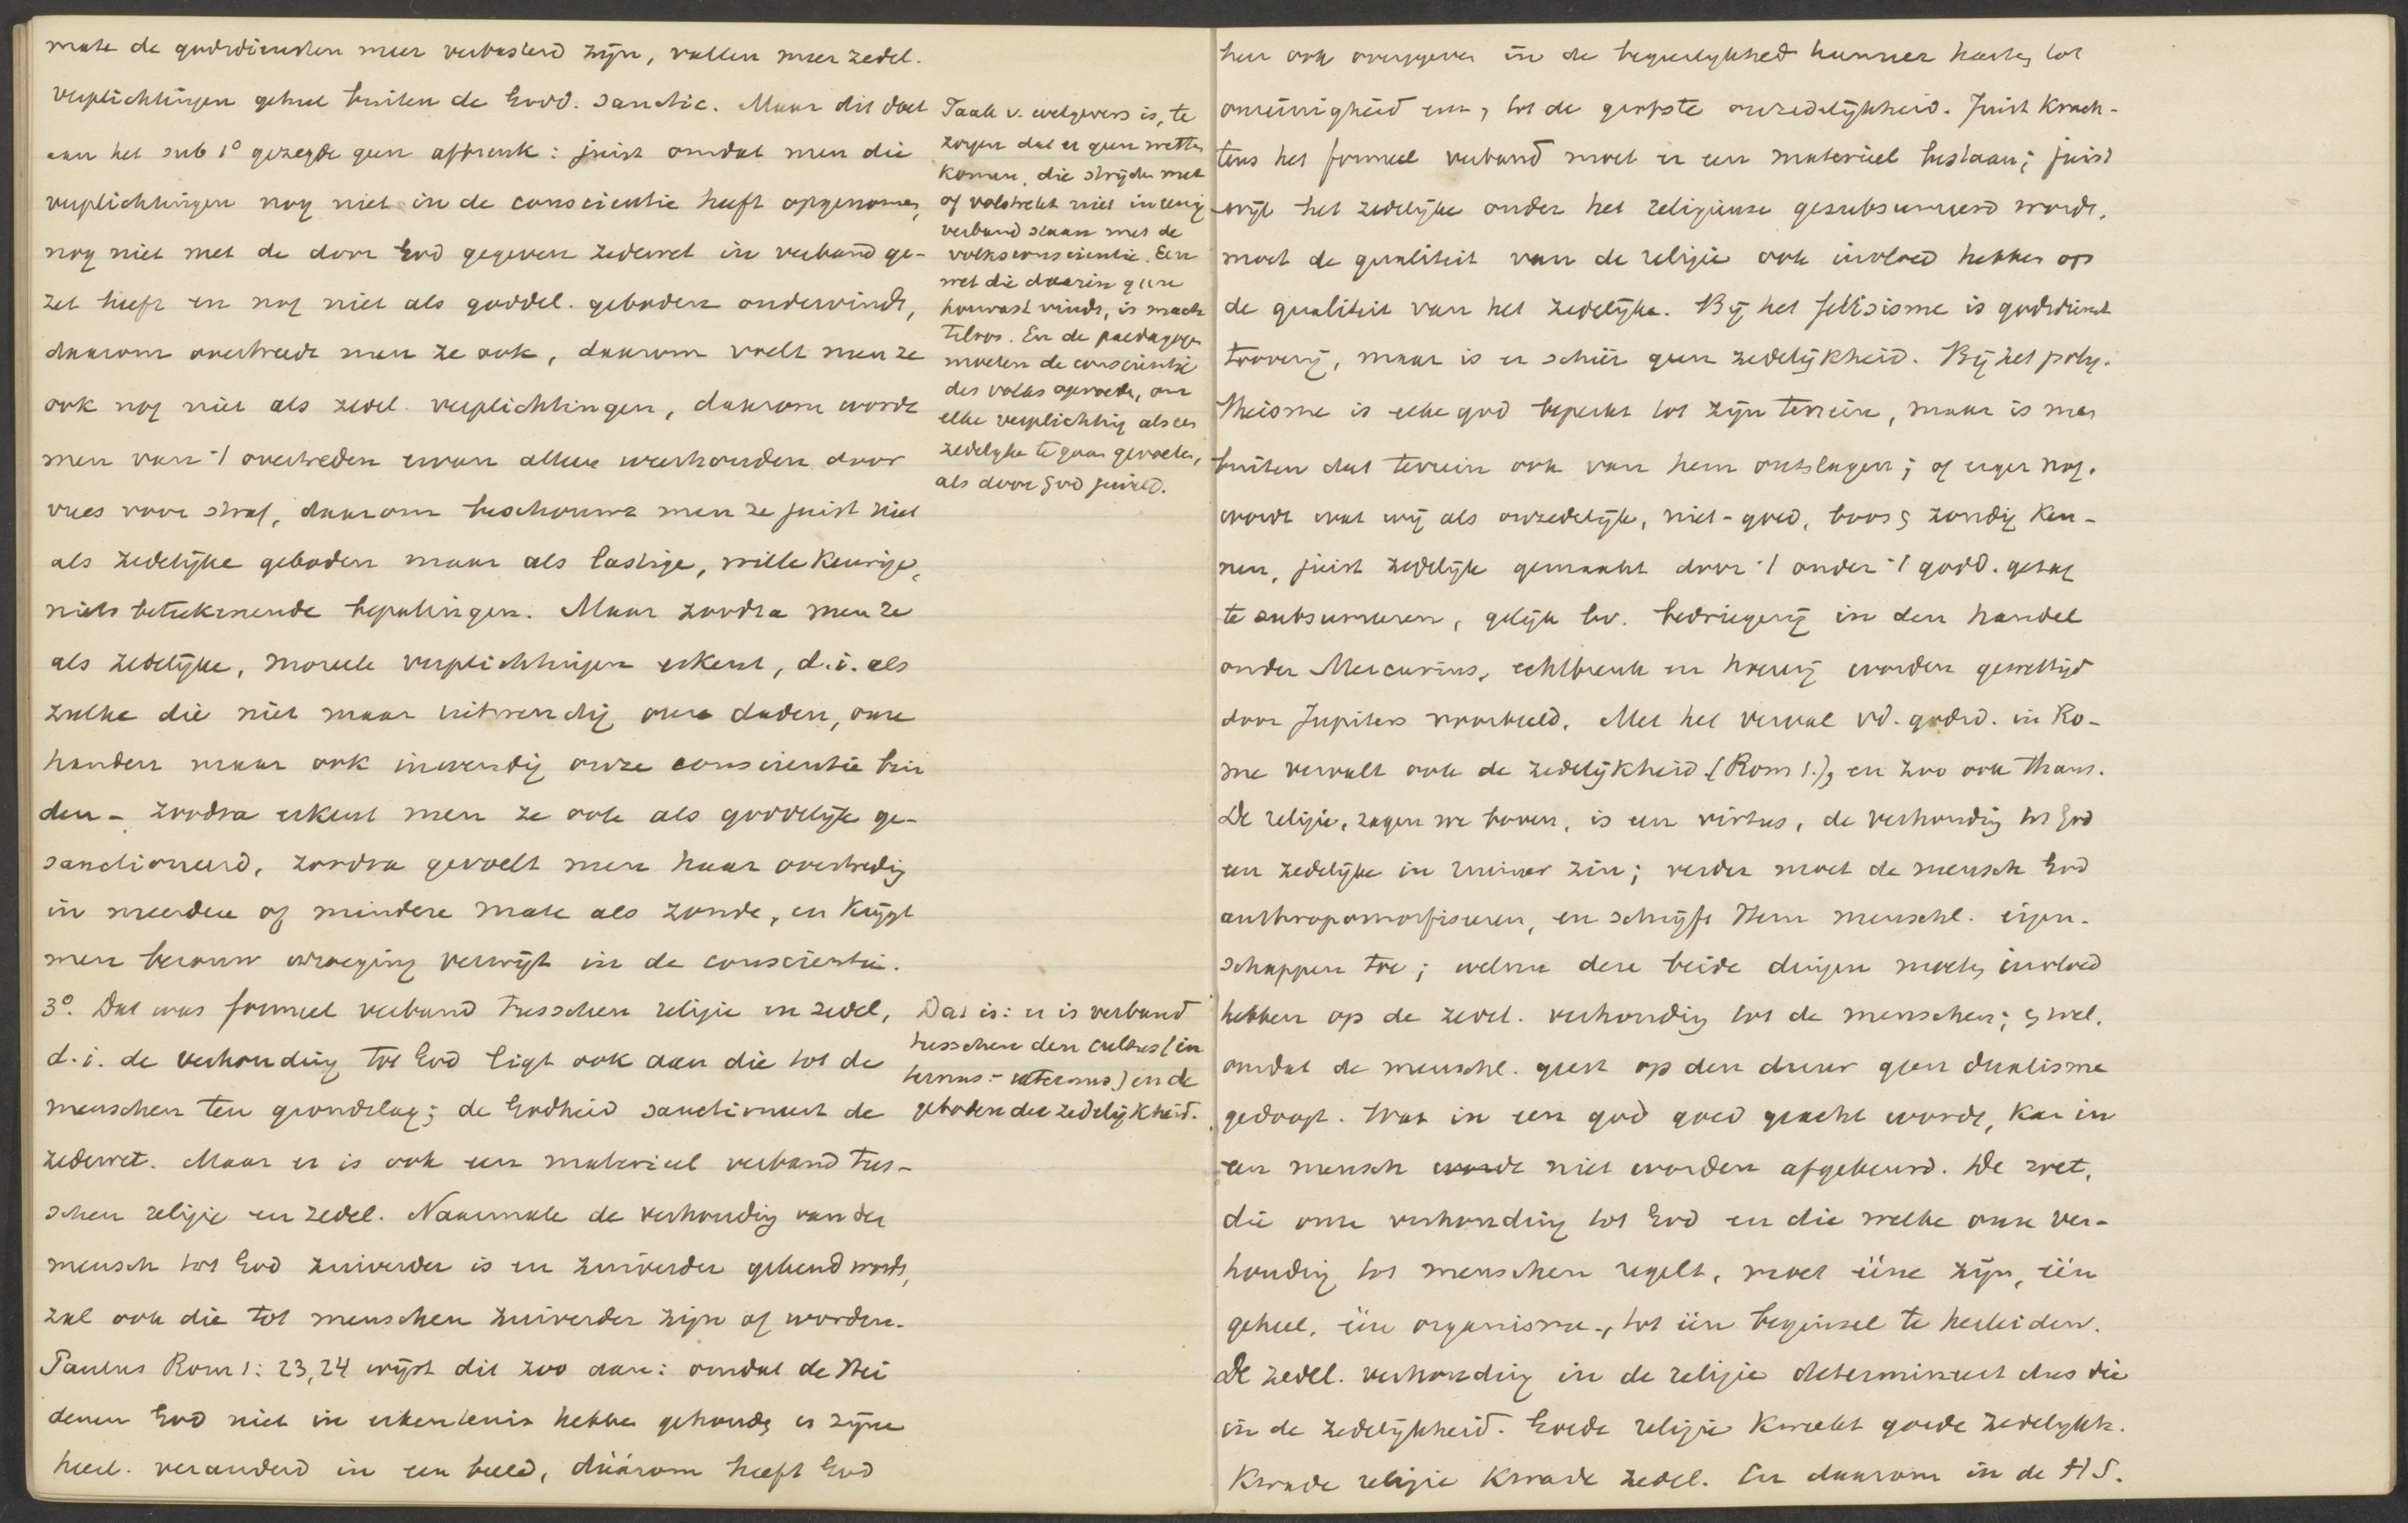 mate de godsdiensten meer verbasterd zijn, vallen meer zedel.
verplichtingen geheel buiten de Godd. Sanctie. Maar dit doet
aan het sub 1° gezegde geen afbreuk: juist omdat men die
verplichtingen nog niet in de conscientie heeft opgenomen,
nog niet met de door God gegeven zedewet in verband ge-
zet heeft en nog niet als goddel. geboden ondervindt,
daarom overtreedt men ze ook, daarom voelt men ze
ook nog niet als zedel. verplichtingen, daarom wordt
men van 't overtreden ervan alleen weerhouden door
vrees voor straf, daarom beschouwt men ze juist niet
als zedelijke geboden maar als lastige, willekeurige,
niets beteekenende bepalingen. Maar zoodra men ze
als zedelijke, moreele verplichtingen erkent, d.i. als
zulke die niet maar uitwendig onze daden, onze
handen maar ook inwendig onze conscientie bin
den - zoodra erkent men ze ook als goddelijk ge-
sanctioneerd, zoodra gevoelt men haar overtreding
in meerdere of mindere mate als zonde, en krijgt
men berouw wroeging verwijt in de conscientie.
3°. Dat was formeel verband tusschen religie en zedel,
d.i. de verhouding tot God ligt ook aan die tot de
menschen ten grondslag; de Godheid sanctioneert de
zedewet. Maar er is ook een materieel verband tus-
schen religie en zedel. Naarmate de verhouding van den
mensch tot God zuiverder is en zuiverder gekend wordt,
zal ook die tot menschen zuiverder zijn of worden.
Paulus Rom 1: 23, 24 wijst dit zoo aan: omdat de Hei
denen God niet in erkentenis hebben gehouden en zijne
heerl. veranderd in een beeld, dáárom heeft God
Taak v. wetgevers is, te
zorgen dat er geen wetten
komen, die strijden met
of volstrekt niet in eenig
verband staan met de
volksconscientie. Een
wet die daarin geen
houvast vindt, is mach
teloos. En de paedagogen
moeten de conscientie
des volks opvoeden, om
elke verplichting als een
zedelijke te gaan gevoelen,
als door God gewild.
Dat is: er is verband
tusschen den cultus (in
ternus - externus) en de
geboden der zedelijkheid.
hen ook overgegeven in de begeerlijkheid hunner harten tot
onreinigheid enz, tot de grofste onzedelijkheid. Juist krach-
tens het formeel verband moet er een materieel bestaan; juist
wijl het zedelijke onder het religieuse gesubsumeerd wordt,
moet de qualiteit van de religie ook invloed hebben op
de qualiteit van het zedelijke. Bij het fetisisme is godsdienst
tooverij, maar is er schier geen zedelijkheid. Bij het poly-
theisme is elke god beperkt tot zijn terrein, maar is men
buiten dat terrein ook van hem ontslagen; of erger nog,
wordt wat wij als onzedelijk, niet-goed, boos & zondig ken-
nen, juist zedelijk gemaakt door 't onder 't godd. gezag
te subsumeeren, gelijk bv. bedriegerij in den handel
onder Mercurius, echtbreuk en hoererij worden gewettigd
door Jupiters voorbeeld. Met het verval vd. godsd. in Ro-
me vervalt ook de zedelijkheid (Rom 1.), en zoo ook thans.
De religie, zagen we boven, is een virtus, de verhouding tot God
een zedelijke in ruimer zin; verder moet de mensch God
anthropomorfiseeren, en schrijft Hem menschl. eigen-
schappen toe; welnu deze beide dingen moeten invloed
hebben op de zedel. verhouding tot de menschen; & wel,
omdat de menschl. geest op den duur geen dualisme
gedoogt. Wat in een god goed geacht wordt, kan in
een mensch wordt niet worden afgekeurd. De wet,
die onze verhouding tot God en die welke onze ver-
houding tot menschen regelt, moet ééne zijn, één
geheel, één organisme, tot één beginsel te herleiden.
De zedel. verhouding in de religie determineert dus die
in de zedelijkheid. Goede religie kweekt goede zedelijkh.
Kwade religie kwade zedel. En daarom in de H S.